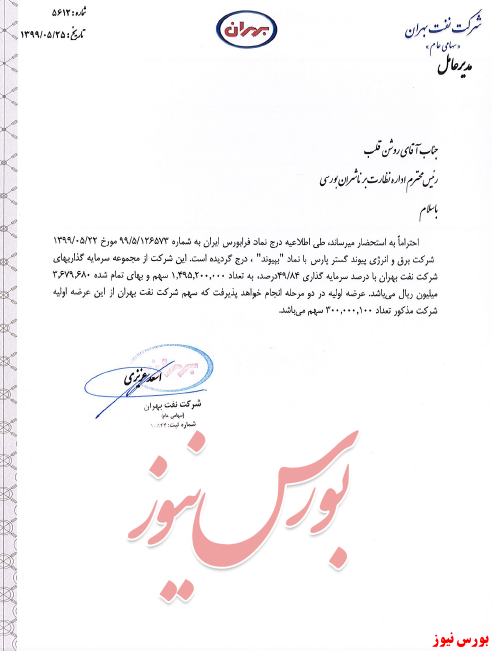 شماره: ۵۶۱۲
تاریخ: ۱۳۹۹/۰۵/۲۵
بهران
شرکت نفت بهران
«سهامی عام»
مدیرعامل
جناب آقای روشن قلب
رئیس محترم اداره نظارت بر ناشران بورسی
باسلام
احتراماً به استحضار میرساند، طی اطلاعیه درج نماد فرابورس ایران به شماره ۹۹/۵/۱۲۶۵۷۳ مورخ ۱۳۹۹/۰۵/۲۲
شرکت برق و انرژی پیوند گستر پارس با نماد "بپیوند" ، درج گردیده است. این شرکت از مجموعه سرمایه گذاریهای
شرکت نفت بهران با درصد سرمایه گذاری ۴۹/۸۴درصد، به تعداد ۱,۴۹۵,۲۰۰,۰۰۰ سهم و بهای تمام شده ۳,۶۷۹,۶۸۰
میلیون ریال می‌باشد. عرضه اولیه در دو مرحله انجام خواهد پذیرفت که سهم شرکت نفت بهران از این عرضه اولیه
شرکت مذکور تعداد ۳۰۰,۰۰۰,۱۰۰ سهم می‌باشد.
شرکت نفت بهران
(سهامی عام)
شماره ثبت:
بورس نیوز
بورس نیوز